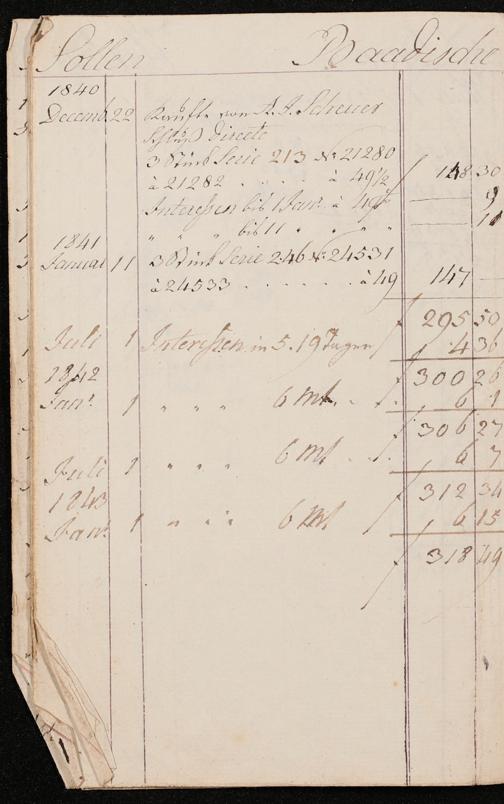 Sollen Baadische
1840
Decemb. 22 Kaufte von A. J. Scheuer
Schluß Directe
3 Stück Serie 213 № 21280
à 21282 . . . . . à 49½ f 148 30
Interessen bis 1 Jan. à 4 9
" " " bis 11 " " " 11
1841
Januar 11 3 Stück Serie 246 № 24531
à 24533 . . . . . . . à 49 147 —
f 295 50
Juli 1 Interessen in 5. 19 Tagen f 4 36
1842 300 26
Jan. 1 " " " 6 mt. . . f. 6 1
f 306 27
Juli 1 " " " 6 mt . . f. 6 7
1843 f 312 34
Jan. 1 " " " 6 mt f 6 15
f 318 49